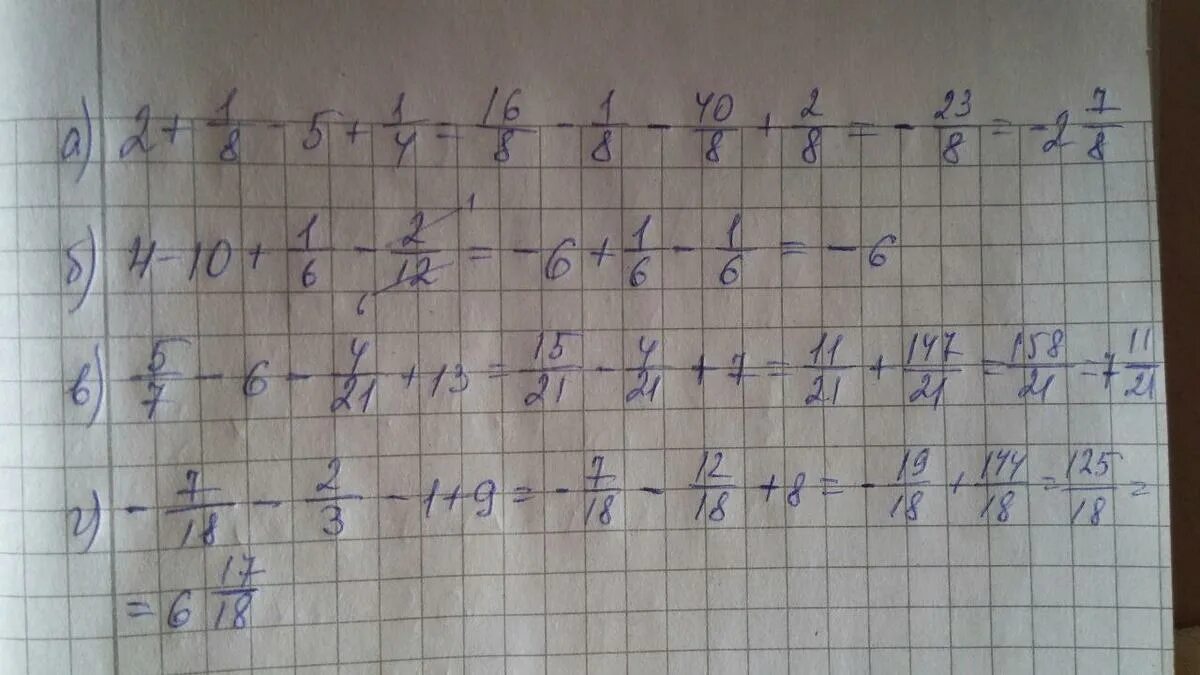 а) 2 + 1/8 - 5 + 1/4 = 16/8 - 1/8 - 40/8 + 2/8 = - 23/8 = -2 7/8
б) 4 - 10 + 1/6 - 2/12 1 6 = -6 + 1/6 - 1/6 = -6
в) 5/7 - 6 - 4/21 + 13 = 15/21 - 4/21 + 7 = 11/21 + 147/21 = 158/21 = 7 11/21
г) - 7/18 - 2/3 - 1 + 9 = - 7/18 - 12/18 + 8 = - 19/18 + 144/18 = 125/18 =
= 6 17/18